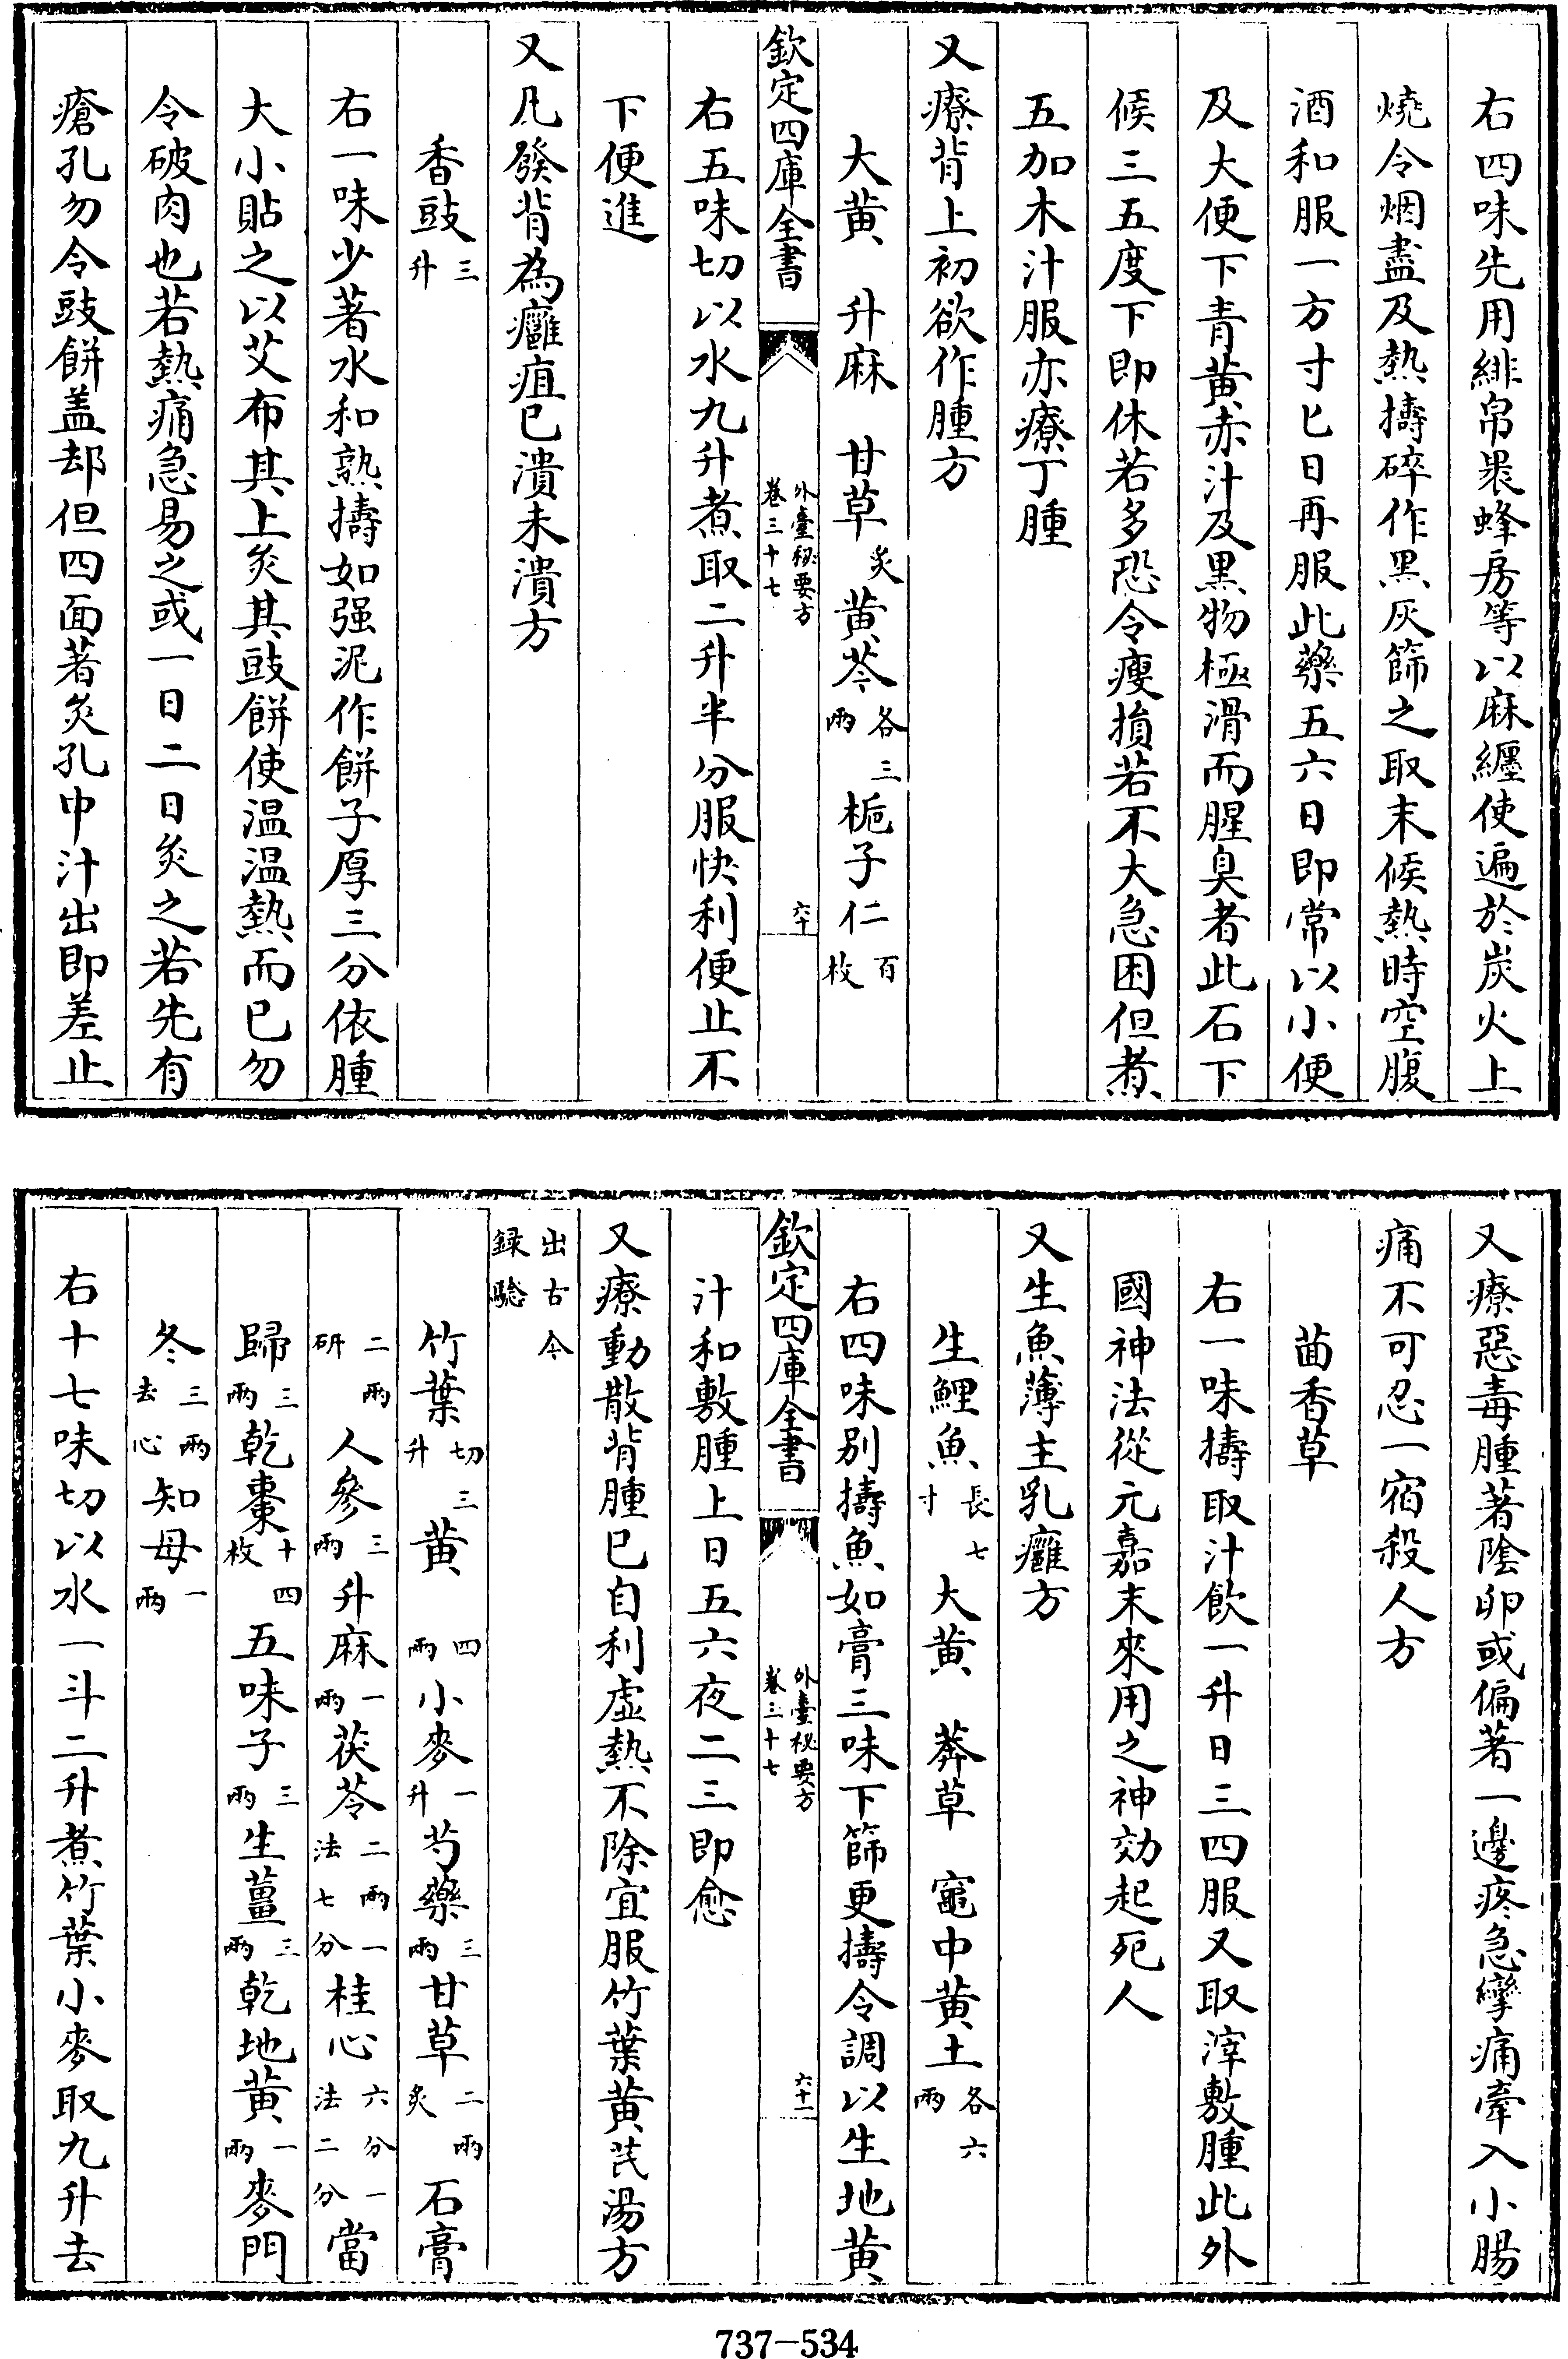 右四味先用緋帛裹蜂房等以麻纒使遍於炭火上
燒令烟盡及熱擣碎作黑灰篩之取末候熱時空腹
酒和服一方寸匕日再服此藥五六日即常以小便
及大便下青黄赤汁及黑物極滑而腥臭者此石下
候三五度下即休若多恐令瘦損若不大急困但煮
五加木汁服亦療丁腫
又療背上初欲作腫方
大黄　升麻　甘草炙　黄芩各三兩　梔子仁百枚
欽定四庫全書　外臺秘要方卷三十七　六十
右五味切以水九升煮取二升半分服快利便止不
下便進
又凡發背為癰疽已潰未潰方
香豉三升
右一味少著水和熟擣如强泥作餅子厚三分依腫
大小貼之以艾布其上灸其豉餅使温温熱而已勿
令破肉也若熱痛急易之或一日二日灸之若先有
瘡孔勿令豉餅盖却但四面著灸孔中汁出即差止
又療惡毒腫著陰卵或偏著一邊疼急攣痛牽入小腸
痛不可忍一宿殺人方
茴香草
右一味擣取汁飲一升日三四服又取滓敷腫此外
國神法從元嘉末來用之神効起死人
又生魚薄主乳癰方
生鯉魚長七寸　大黄　莽草　竈中黄土各六兩
右四味别擣魚如膏三味下篩更擣令調以生地黄
欽定四庫全書　外臺秘要方卷三十七　六十一
汁和敷腫上日五六夜二三即愈
又療動散背腫已自利虚熱不除宜服竹葉黄芪湯方
出古今録驗
竹葉切三升　黄　四兩　小麥一升　芍藥三兩　甘草二兩炙　石膏
二兩研　人參三兩　升麻一兩　茯苓二兩一法七分　桂心六分一法二分　當
歸三兩　乾棗十四枚　五味子三兩　生薑三兩　乾地黄一兩　麥門
冬三兩去心　知母一兩
右十七味切以水一斗二升煮竹葉小麥取九升去
737-534